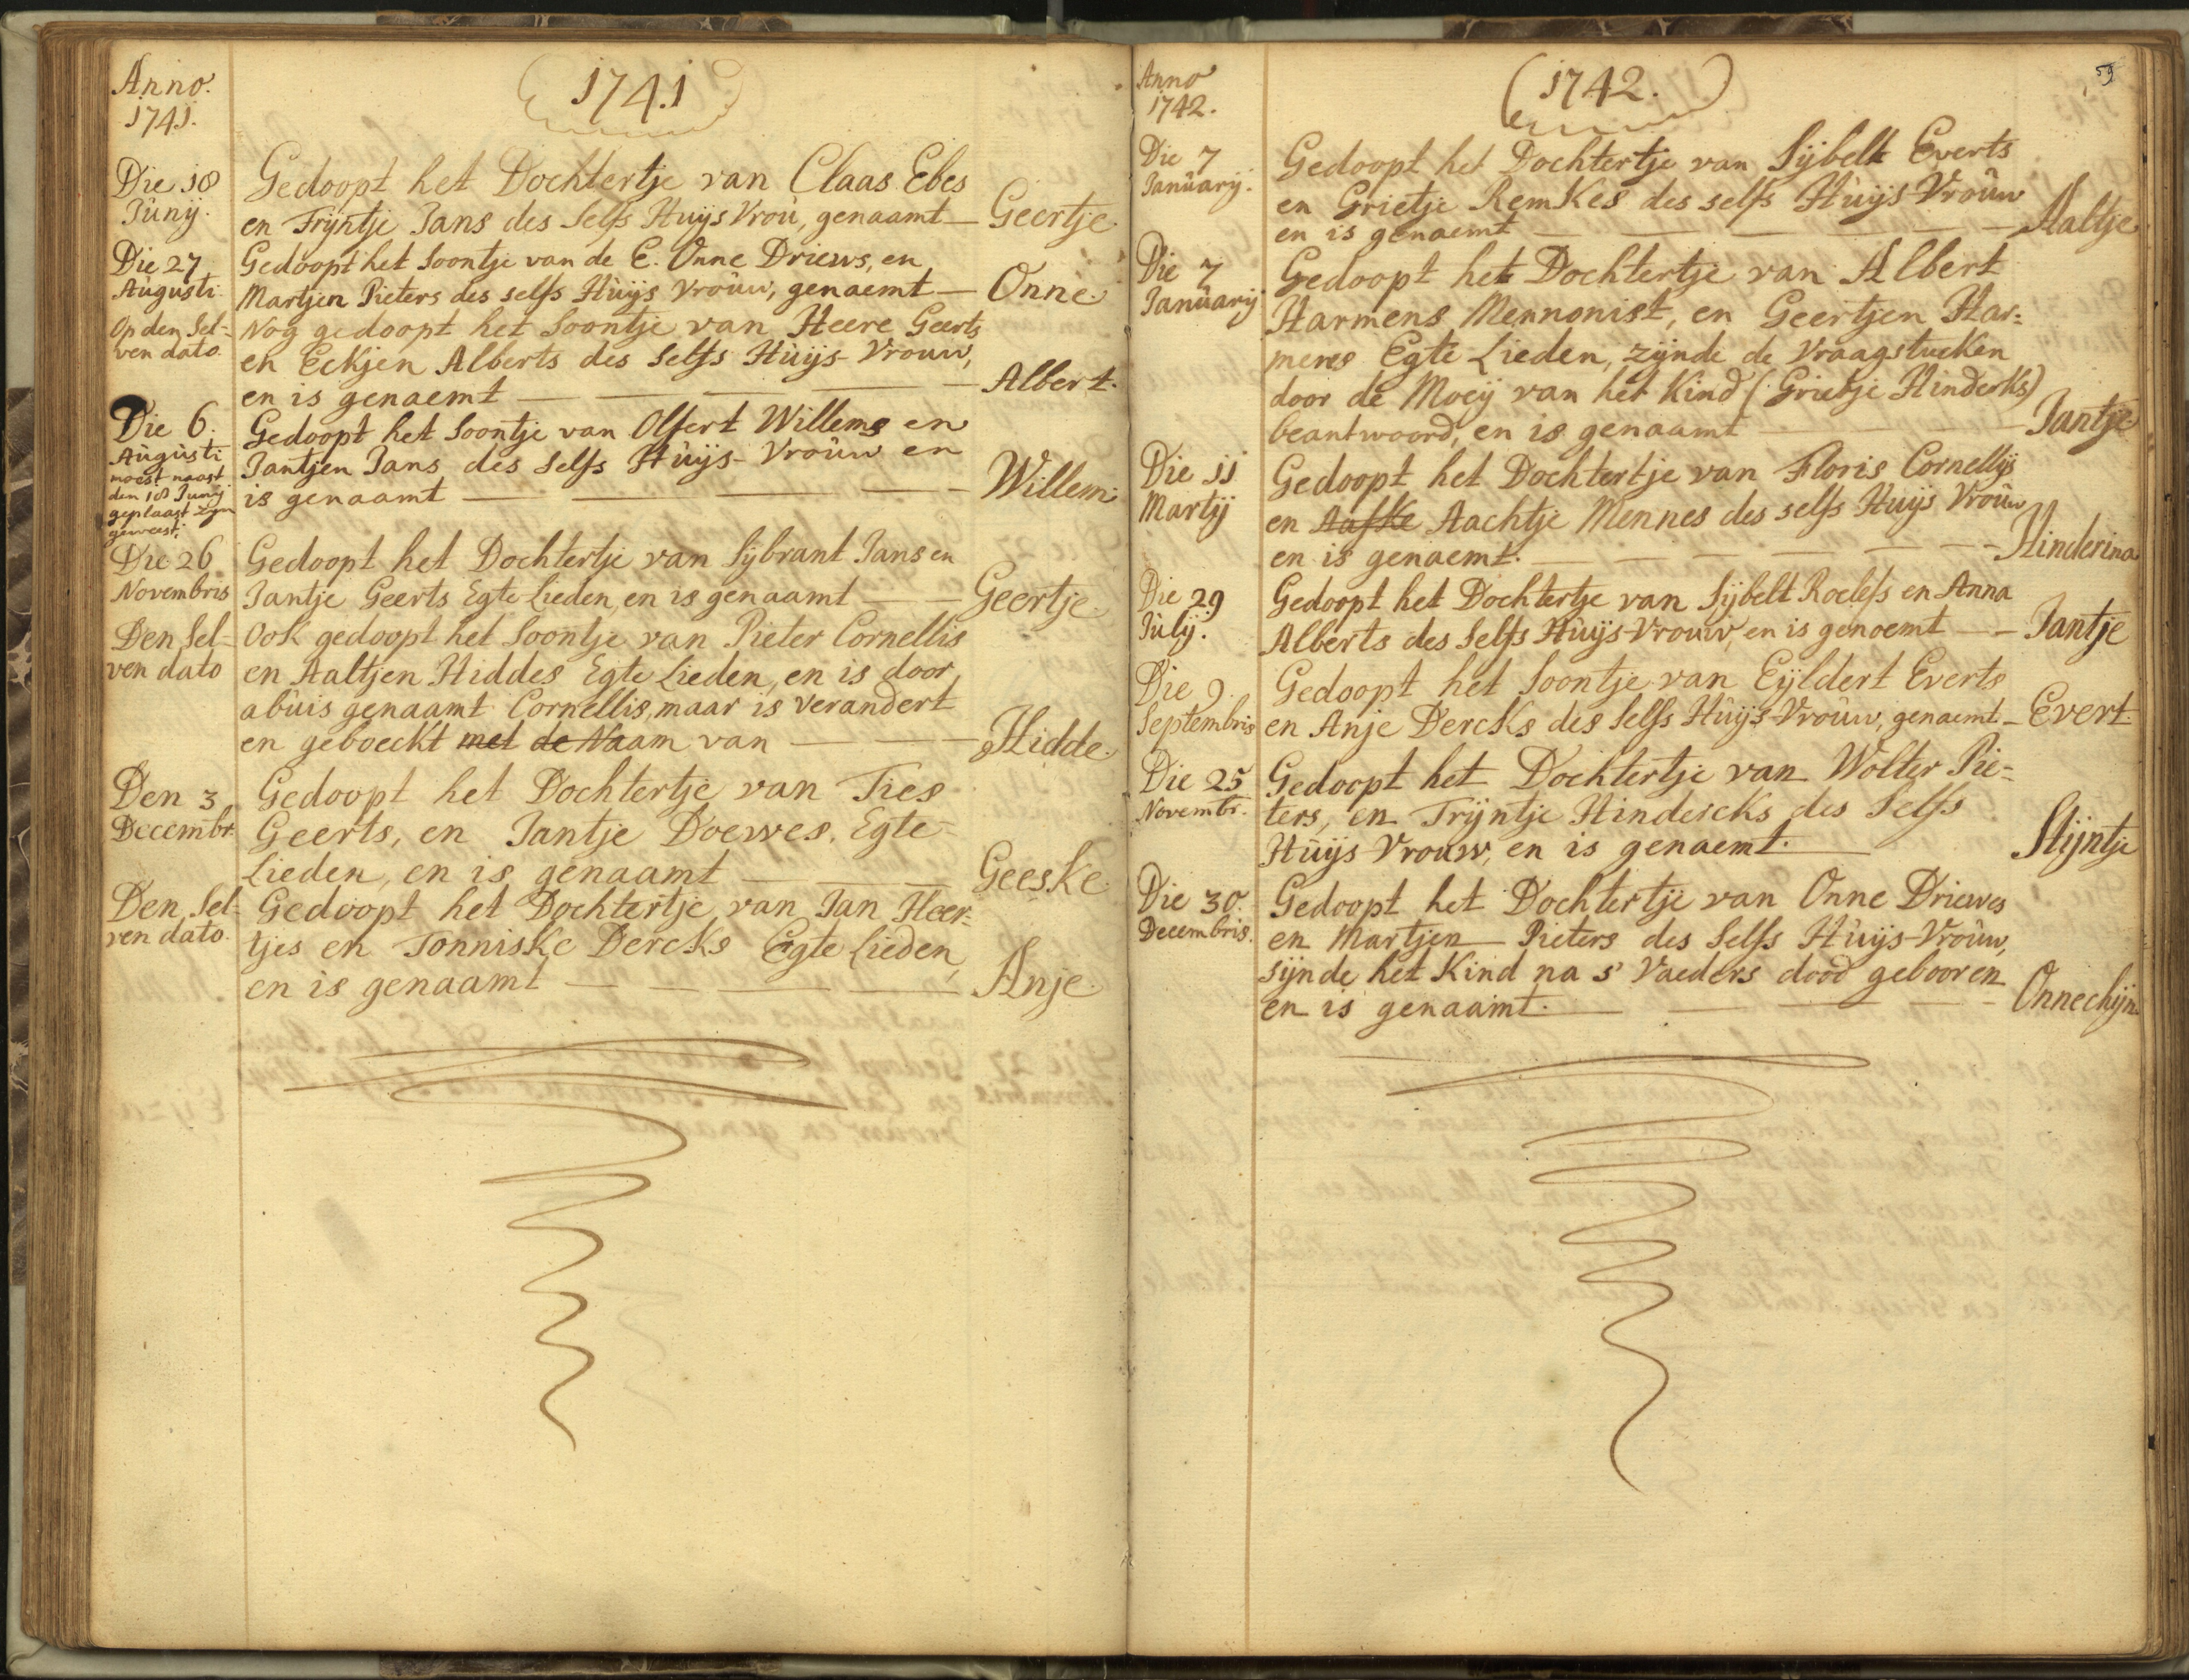 Anno.
1741.
1741
Die 18
Junÿ.
Gedoopt het Dochtertje van Claas Ebes
en Trÿntje Jans des Selfs Huÿs Vroŭ, genaamt — Geertje.
Die 27
Augusti
Gedoopt het Soontje van de E. Onne Driews, en
Martjen Pieters des selfs Hŭÿs Vroŭw, genaemt — Onne
Op den Sel-
ven dato.
Nog gedoopt het Soontje van Heere Geerts
en Eckjen Alberts des Selfs Hŭÿs-Vrouw,
en is genaemt — Albert.
Die 6.
Augŭsti
moest naast
den 18 Junÿ
geplaast zyn
geweest.
Gedoopt het Soontje van Olfert Willems en
Jantjen Jans des Selfs Hŭÿs-Vroŭw en
is genaamt — Willem
Die 26
Novembris
Gedoopt het Dochtertje van Sÿbrant Jans en
Jantje Geerts Egte Lieden, en is genaamt — Geertje.
Den Sel-
ven dato
Ook gedoopt het Soontje van Pieter Cornellis
en Aaltjen Hiddes Egte Lieden, en is door
abŭis genaamt Cornellis, maar is verandert
en geboeckt met de Naam van — Hidde.
Den 3
Decembr.
Gedoopt het Dochtertje van Ties
Geerts, en Jantje Doewes, Egte-
Lieden, en is genaamt — Geeske
Den Sel-
ven dato.
Gedoopt het Dochtertje van Jan Heer-
tjes en Tonniske Dercks Egte Lieden,
en is genaamt — Anje.
59
Anno
1742.
(1742.)
Die 7
Janŭarÿ.
Gedoopt het Dochtertje van Sÿbelt Everts
en Grietje Remkes des selfs Hŭÿs-Vroŭw
en is genaemt — Aaltje
Die 7
Janŭarÿ
Gedoopt het Dochtertje van Albert
Harmens Mennonist, en Geertjen Har-
mens Egte Lieden, zÿnde de Vraagstucken
door de Moeÿ van het Kind (Grietje Hinderks)
beantwoord, en is genaamt — Jantje
Die 11
Martÿ
Gedoopt het Dochtertje van Floris Cornellÿs
en Aafke Aachtje Mennes des selfs Huÿs Vroŭw
en is genaemt. — Hinderina
Die 29
Jŭlÿ.
Gedoopt het Dochtertje van Sÿbelt Roelefs en Anna
Alberts des Selfs Hŭÿs-Vrouw, en is genoemt — Jantje
Die 9.
Septembris
Gedoopt het Soontje van Eÿldert Everts
en Anje Dercks des Selfs Hŭÿs-Vroŭw, genaemt — Evert.
Die 25
Novembr.
Gedoopt het Dochtertje van Wolter Pie-
ters, en Trÿntje Hindercks des Selfs
Hŭÿs Vrouw, en is genaemt. Stÿntje
Die 30.
Decembris.
Gedoopt het Dochtertje van Onne Driewes
en Martjen Pieters des Selfs Hŭÿs-Vroŭw,
sÿnde het Kind na s' Vaeders dood gebooren
en is genaamt. — Onnechÿn.